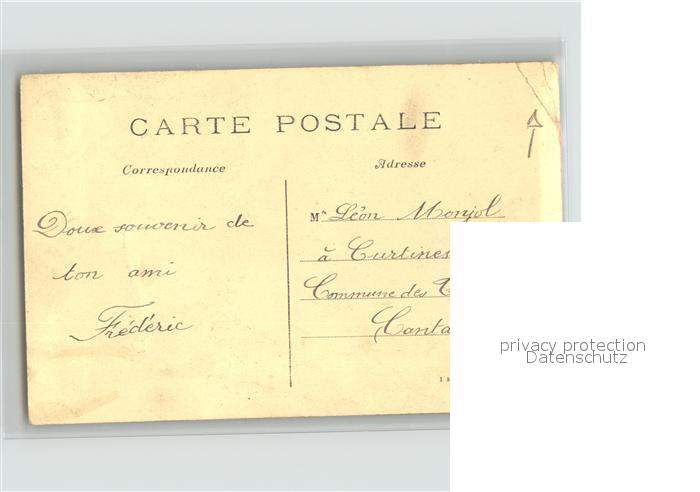 CARTE POSTALE
Correspondance
Adresse
Doux souvenir de
ton ami
Frédéric
Mr Léon Monjol
à Curtines
Commune des
Canta
privacy protection
Datenschutz